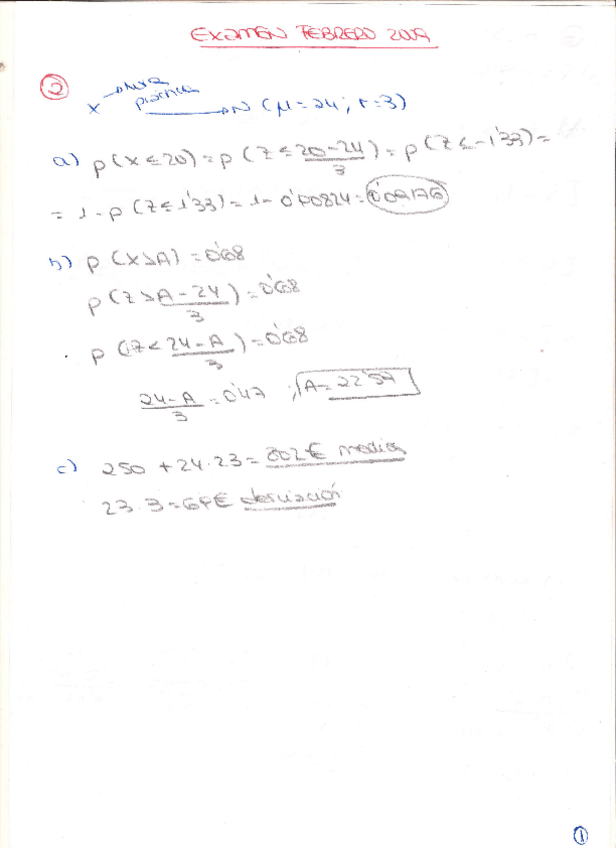 EXAMEN FEBRERO 2009
②
x → nº x práctica → N (μ=24; σ=3)
a) p(x≤20) = p(z≤ 20-24 / 3) = p(z≤-1'33) =
= 1 - p(z≤1'33) = 1 - 0'90824 = 0'09176
b) p(x>A) = 0'68
p(z> A-24 / 3) = 0'68
p(z< 24-A / 3) = 0'68
24-A / 3 = 0'47 ; A= 22'59
c) 250 + 24·23 = 802€ media
23·3 = 69€ desviación
①